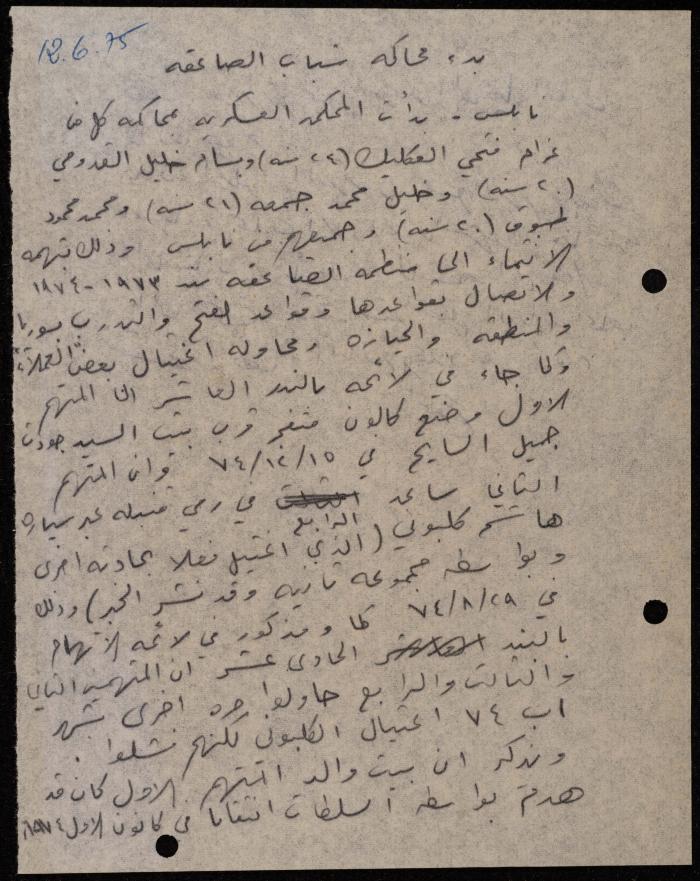 12.6.75
بدء محاكمة شباب الصاعقه
نابلس - بدأت المحكمه العسكريه محاكمة كل من
فتحي (٢٤ سنه) وبسام خليل القدومي
(٢٠ سنه) وخليل محمد جمعه (٢١ سنه) ومحمد محمود
(٢٠ سنه) وجميعهم من نابلس وذلك بتهمه
الانتماء الى منظمه الصاعقه منذ ١٩٧٣-١٩٧٤
والاتصال بقواعدها وقواعد لفتح والتدرب بسوريا
والمنطقه والحيازه ومحاوله اغتيال بعض "العملاء"
وكما جاء في لائحه بالبند العاشر ان المتهم
الاول وضع كالون متفجر قرب بيت السيد جودت
جميل السايح في ٧٤/١٢/١٥ وان المتهم
الثاني ساعد الرابع في رمي قنبله عند سياره
هاشم كلبوني (الذي اغتيل فعلا بحادثه اخرى
وبواسطه مجموعه ثانيه وقد نشر الخبر) وذلك
في ٧٤/٨/٢٩ كما ومذكور في لائحه الاتهام
بالبند الحادي عشر ان المتهمين الثاني
والثالث والرابع حاولوا مره اخرى شهر
اب ٧٤ اغتيال الكلبوني لكنهم فشلوا .
ونذكر ان بيت والد المتهم الاول كان قد
هدم بواسطه السلطات انتقاما في كانون الاول ١٩٧٤